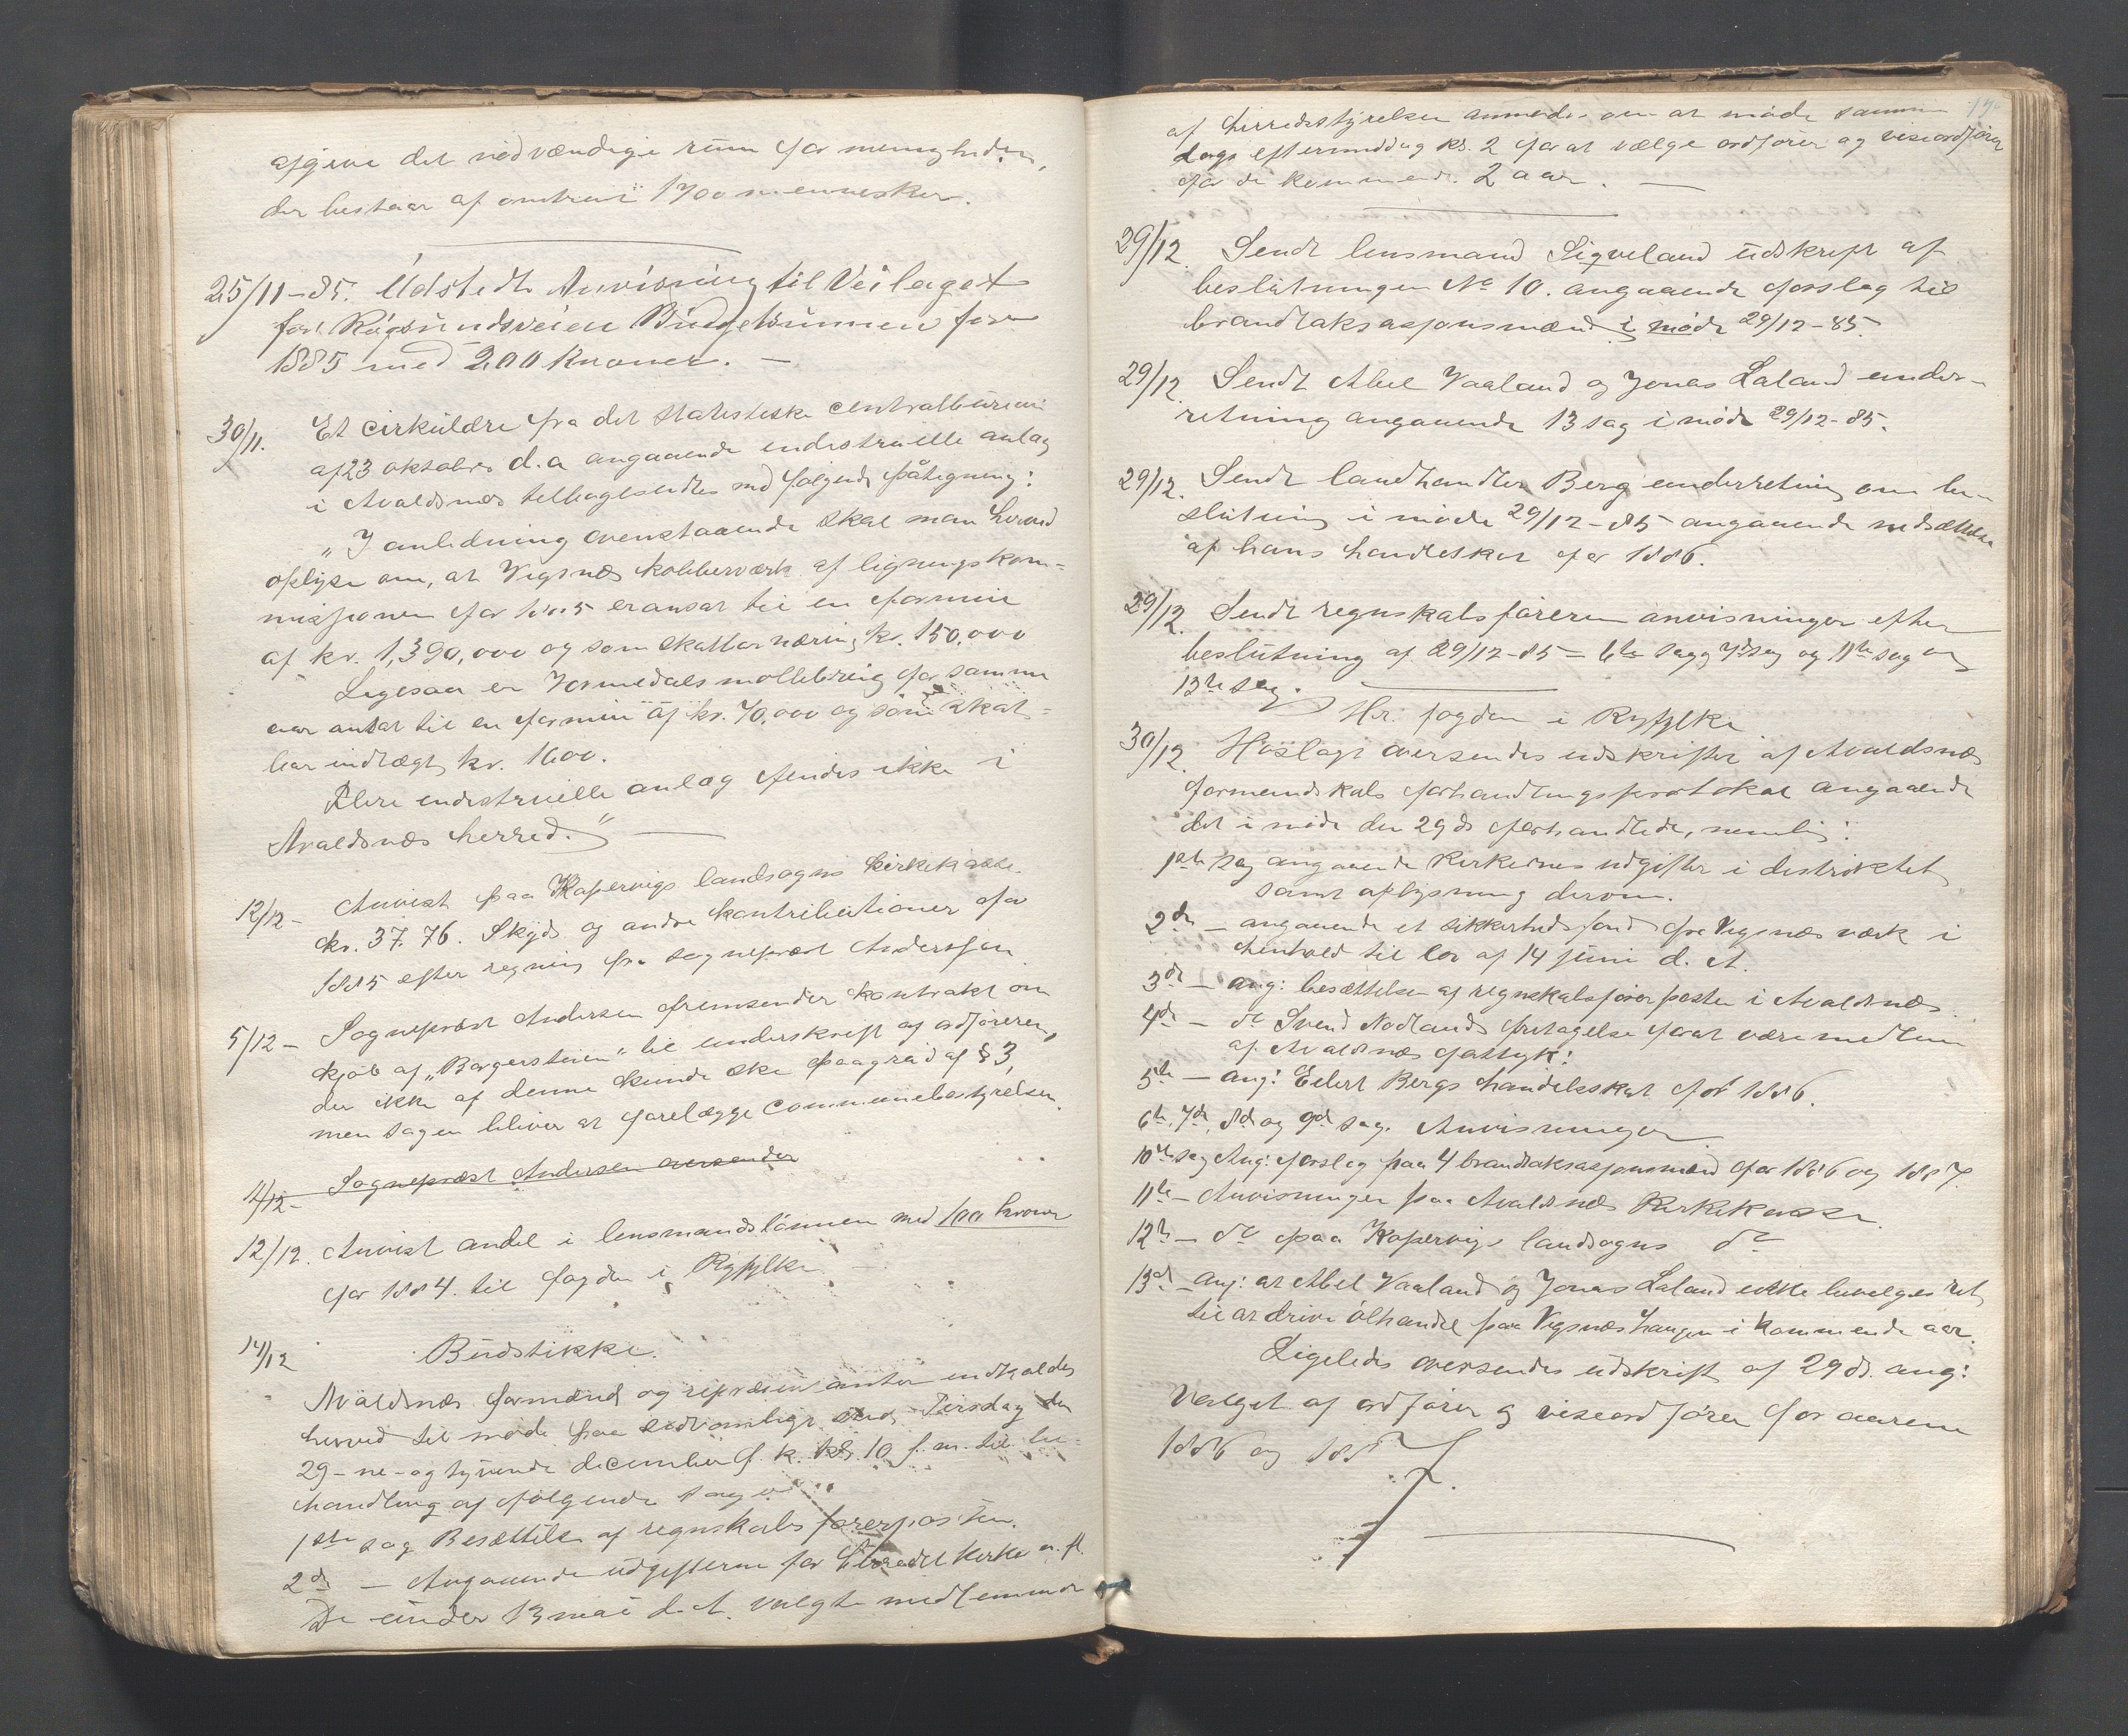 afgive det nødvændige rum for menigheden,
der bestaar af omtrent 1700 mennesker.
25/11-85. Udstedt Anvisning til Veilaget
for Røgsundsveien Budgetsummen for
1885 med 200 Kroner. —
30/11. Et cirkulære fra det statistiske centralbureau
af 23 oktober d.a angaaende industrielle anlæg
i Avaldsnæs tilbagesendtes med følgende påtegning:
„I anledning ovenstaaende skal man herved
oplyse om, at Vigsnæs kobberværk af ligningskom=
missionen for 1885 er ansat til en formue
af kr. 1,390,000 og som skattbar næring kr. 150,000
Ligesaa er Vormedals møllebrug for samme
aar ansat til en formue af kr. 70,000 og som skat=
bar indtægt kr. 1600.
Flere industrielle anlæg findes ikke i
Avaldsnæs herred." —
12/12- Anvist paa Kopervigs landsogns kirkekasse
kr. 37.76. Skyds og andre kontributioner for
1885 efter regning fra sogneprest Andersen
5/12- Sogneprest Andersen fremsender kontrakt om
kjøb af „Borgersteien" til underskrift af ordføreren,
der ikke af denne kunde ske paagrund af § 3,
men sagen bliver at forelægge communebestyrelsen.
1/12- Sogneprest Andersen oversender
12/12. Anvist andel i lensmandslønnen med 100 kroner
for 1884 til fogden i Ryfylke —
14/12 Budstikke.
Avaldsnæs formænd og repræsentanter indkaldes
herved til møde paa sædvanligt sted Tirsdag den
29-ne-og tyvende december f. k. kl. 10 f.m. til be=
handling af følgende sager
1ste sag Besættelse af regnskabsførerposten.
2de — Angaaende udgifterne for herredets kirker m. fl.
De under 13 mai d. A. valgte medlemmer
af herredstyrelsen anmodes om at møde samme
dags eftermiddag kl. 2 for at vælge ordfører og viseordfører
for de kommende 2 aar. —
29/12. Sendt lensmand Sigveland udskrift af
beslutningen No 10. angaaende forslag til
brandtaksasjonsmænd i møde 29/12-85.
29/12. Sendt Abel Vaaland og Jonas Laland under-
retning angaaende 13 sag i møde 29/12-85.
29/12. Sendt landhandler Berg underretning om be-
slutning i møde 29/12-85 angaaende nedsættelse
af hans handelskat for 1886.
29/12. Sendt regnskabsføreren anvisninger efter
beslutning af 29/12-85 = 6te sag 7de sag og 11te sag og
13de sag.
Hr. fogden i Ryfylke
30/12. Hoslagt oversendes udskrifter af Avaldsnæs
formandskabs forhandlingsprotokol angaaende
det i møde den 29 ds forhandlede, nemlig:
1ste sag angaaende kirkernes udgifter i distriktet
samt oplysning derom.
2de — angaaende et sikkerhedsfond fra Vigsnæs værk i
henhold til lov af 14 juni d. A.
3de — ang: besættelsen af regnskabsførerposten i Avaldsnæs.
4de — do Svend Nodlands fritagelse for at være medlem
af Avaldsnæs fattigk:
5te — ang: Eilert Bergs handelsskat for 1886.
6te, 7de, 8de og 9de sag. Anvisninger.
10de sag Ang: forslag paa 4 brandtaksasjonsmænd for 1886 og 1887.
11te — Anvisninger paa Avaldsnæs Kirkekasse.
12te — do paa Kopervigs landsogns do
13de — ang: at Abel Vaaland og Jonas Laland ikke bevilges ret
til at drive ølhandel paa Vigsnæs haugen i kommende aar.
Ligeledes oversendes udskrift af 29 ds. ang:
Valget af ordfører og viseordfører for aarene
1886 og 1887.